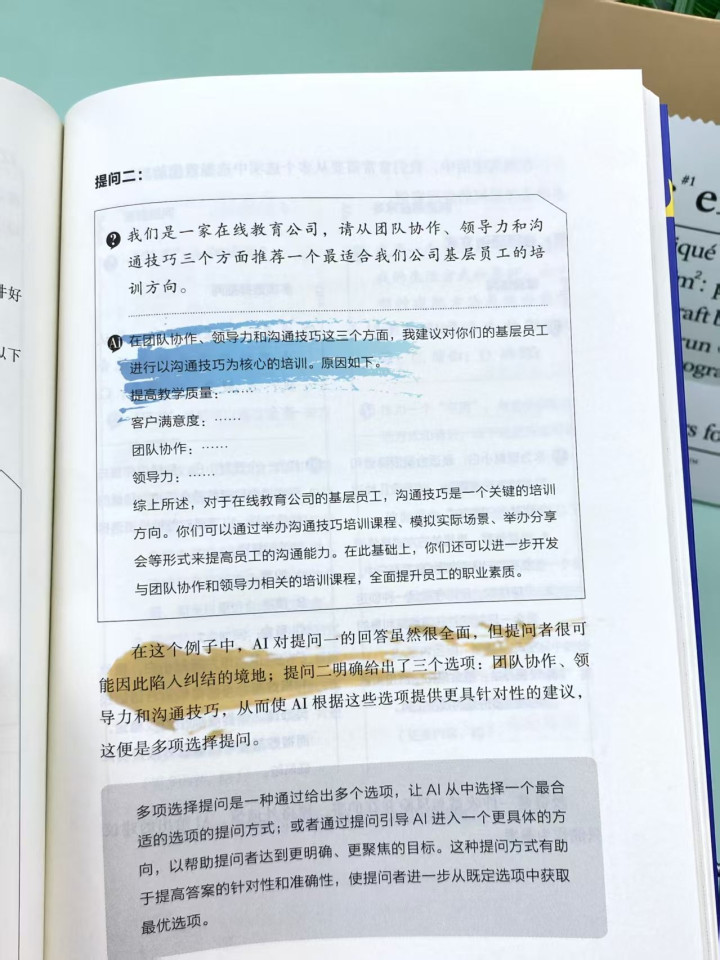 提问二：
我们是一家在线教育公司，请从团队协作、领导力和沟
通技巧三个方面推荐一个最适合我们公司基层员工的培
训方向。
AI 在团队协作、领导力和沟通技巧这三个方面，我建议对你们的基层员工
进行以沟通技巧为核心的培训。原因如下。
提高教学质量：……
客户满意度：……
团队协作：……
领导力：……
综上所述，对于在线教育公司的基层员工，沟通技巧是一个关键的培训
方向。你们可以通过举办沟通技巧培训课程、模拟实际场景、举办分享
会等形式来提高员工的沟通能力。在此基础上，你们还可以进一步开发
与团队协作和领导力相关的培训课程，全面提升员工的职业素质。
在这个例子中，AI 对提问一的回答虽然很全面，但提问者很可
能因此陷入纠结的境地；提问二明确给出了三个选项：团队协作、领
导力和沟通技巧，从而使 AI 根据这些选项提供更具针对性的建议，
这便是多项选择提问。
多项选择提问是一种通过给出多个选项，让 AI 从中选择一个最合
适的选项的提问方式；或者通过提问引导 AI 进入一个更具体的方
向，以帮助提问者达到更明确、更聚焦的目标。这种提问方式有助
于提高答案的针对性和准确性，使提问者进一步从既定选项中获取
最优选项。
件好
以下
#1
iqué
m²:
raft
run
ogra
s fo